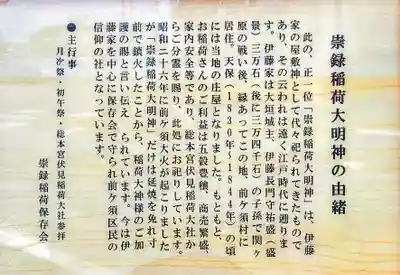 崇録稲荷大明神の由緒
此の、正一位「崇録稲荷大明神」は、伊藤
家の屋敷神として代々祀られてきたもので
あり、その云われは遠く江戸時代に遡りま
す。伊藤家は大垣城主、伊藤長門守祐盛(盛
景)三万石(後に三万四千石)の子孫で関ヶ
原の戦い後、縁あってこの地、前ヶ須村に
居住。天保(1830年〜1844年)の頃
には当地の庄屋となりました。もともと、
お稲荷さんのご利益は五穀豊穣、商売繁盛、
家内安全等であり、総本宮伏見稲荷大社か
らご分霊を賜り、此処にお祀りしています。
昭和二十六年に前ヶ須大火が起こりました
が「崇録稲荷大明神」だけは延焼を免れ寸
前で鎮火したことから、稲荷大明神様のご加
護の賜と言い伝えられています。今は伊
藤家を中心に保存会で守られ前ヶ須区民の
信仰の社となっています。
●主行事
月次祭・初午祭・総本宮伏見稲荷大社参拝
崇録稲荷保存会